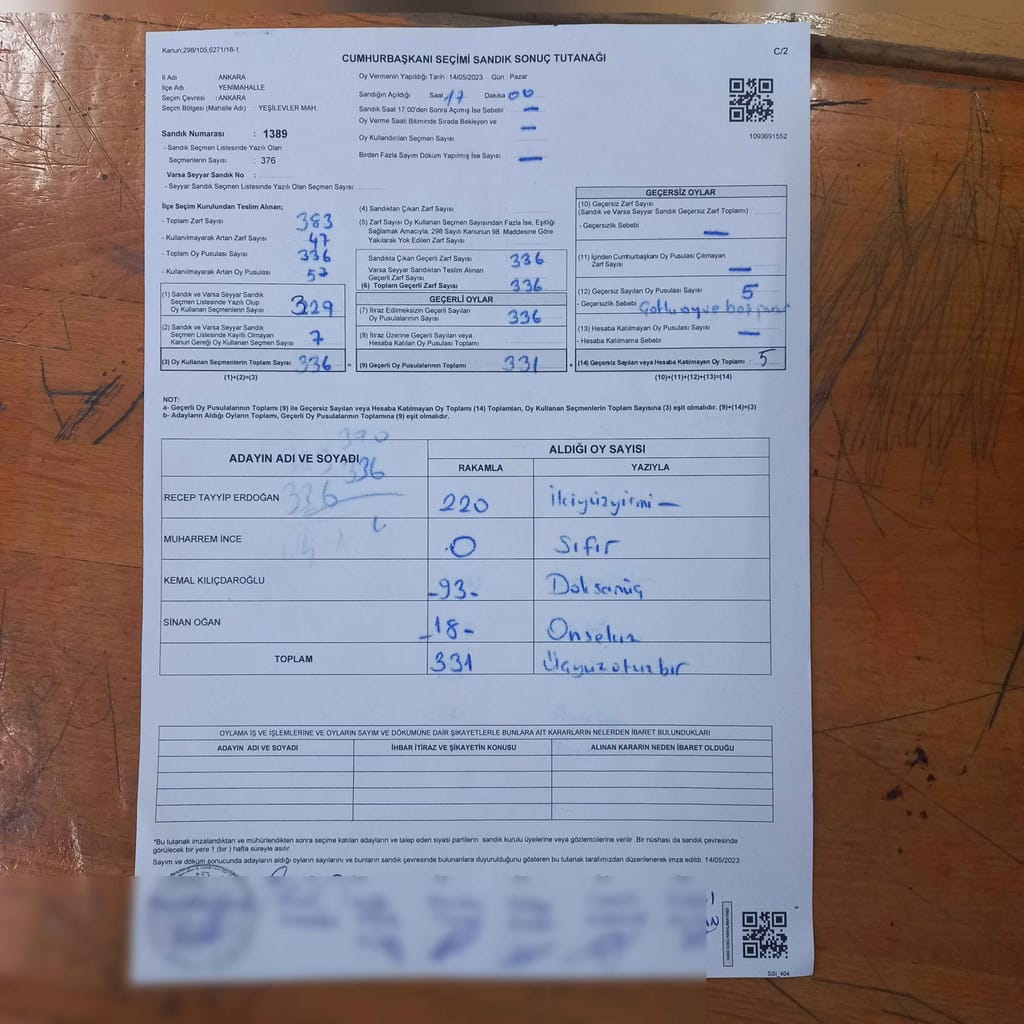 Kanun:298/105,6271/18-1
C/2
CUMHURBAŞKANI SEÇİMİ SANDIK SONUÇ TUTANAĞI
İl Adı : ANKARA
İlçe Adı : YENİMAHALLE
Seçim Çevresi : ANKARA
Seçim Bölgesi (Mahalle Adı) : YEŞİLEVLER MAH.
Sandık Numarası : 1389
- Sandık Seçmen Listesinde Yazılı Olan
Seçmenlerin Sayısı : 376
Varsa Seyyar Sandık No :
- Seyyar Sandık Listesinde Yazılı Olan Seçmen Sayısı
Oy Vermenin Yapıldığı Tarih : 14/05/2023 Gün : Pazar
Sandığın Açıldığı Saat 17 Dakika 00
Sandık Saat 17:00'den Sonra Açımış İse Sebebi —
Oy Verme Saati Bitiminde Sırada Bekleyen ve
Oy Kullandırılan Seçmen Sayısı —
Birden Fazla Sayım Döküm Yapılmış İse Sayısı —
1093691552
İlçe Seçim Kurulundan Teslim Alınan;
- Toplam Zarf Sayısı 383
- Kullanılmayarak Artan Zarf Sayısı 47
- Toplam Oy Pusulası Sayısı 336
- Kullanılmayarak Artan Oy Pusulası 57
(1) Sandık ve Varsa Seyyar Sandık
Seçmen Listesinde Yazılı Olup
Oy Kullanan Seçmenlerin Sayısı 329
(2) Sandık ve Varsa Seyyar Sandık
Seçmen Listesinde Kayıtlı Olmayan
Kanun Gereği Oy Kullanan Seçmen Sayısı 7
(3) Oy Kullanan Seçmenlerin Toplam Sayısı 336
(1)+(2)=(3)
(4) Sandıktan Çıkan Zarf Sayısı
(5) Zarf Sayısı Oy Kullanan Seçmen Sayısından Fazla İse, Eşitliği
Sağlamak Amacıyla, 298 Sayılı Kanunun 98. Maddesine Göre
Yakılarak Yok Edilen Zarf Sayısı
Sandıkta Çıkan Geçerli Zarf Sayısı 336
Varsa Seyyar Sandıktan Teslim Alınan
Geçerli Zarf Sayısı
(6) Toplam Geçerli Zarf Sayısı 336
GEÇERLİ OYLAR
(7) İtiraz Edilmeksizin Geçerli Sayılan
Oy Pusulalarının Sayısı 336
(8) İtiraz Üzerine Geçerli Sayılan veya
Hesaba Katılan Oy Pusulası Toplamı
= (9) Geçerli Oy Pusulalarının Toplamı 331
GEÇERSİZ OYLAR
(10) Geçersiz Zarf Sayısı
(Sandık ve Varsa Seyyar Sandık Geçersiz Zarf Toplamı)
- Geçersizlik Sebebi —
(11) İçinden Cumhurbaşkanı Oy Pusulası Çıkmayan
Zarf Sayısı —
(12) Geçersiz Sayılan Oy Pusulası Sayısı 5
- Geçersizlik Sebebi
(13) Hesaba Katılmayan Oy Pusulası Sayısı —
- Hesaba Katılmama Sebebi
+ (14) Geçersiz Sayılan veya Hesaba Katılmayan Oy Toplamı 5
(10)+(11)+(12)+(13)=(14)
NOT:
a- Geçerli Oy Pusulalarının Toplamı (9) ile Geçersiz Sayılan veya Hesaba Katılmayan Oy Toplamı (14) Toplamları, Oy Kullanan Seçmenlerin Toplam Sayısına (3) eşit olmalıdır. (9)+(14)=(3)
b- Adayların Aldığı Oyların Toplamı, Geçerli Oy Pusulalarının Toplamına (9) eşit olmalıdır.
390
336
336
ADAYIN ADI VE SOYADI
ALDIĞI OY SAYISI
RAKAMLA YAZIYLA
RECEP TAYYİP ERDOĞAN 220 İkiyüzyirmi —
MUHARREM İNCE 0 Sıfır
KEMAL KILIÇDAROĞLU -93- Doksanüç
SİNAN OĞAN -18- Onsekiz
TOPLAM 331 Üçyüzotuzbir
OYLAMA İŞ VE İŞLEMLERİNE VE OYLARIN SAYIM VE DÖKÜMÜNE DAİR ŞİKAYETLERLE BUNLARA AİT KARARLARIN NELERDEN İBARET BULUNDUKLARI
ADAYIN ADI VE SOYADI İHBAR İTİRAZ VE ŞİKAYETİN KONUSU ALINAN KARARIN NEDEN İBARET OLDUĞU
*Bu tutanak imzalandıktan ve mühürlendikten sonra seçime katılan adayların ve talep eden siyasi partilerin sandık kurulu üyelerine veya gözlemcilerine verilir. Bir nüshası da sandık çevresinde
görülecek bir yere 1 (bir ) hafta süreyle asılır.
Sayım ve döküm sonucunda adayların aldığı oyların sayılarını ve bunların sandık çevresinde bulunanlara duyurulduğunu gösteren bu tutanak tarafımızdan düzenlenerek imza edildi. 14/05/2023
SSI_404